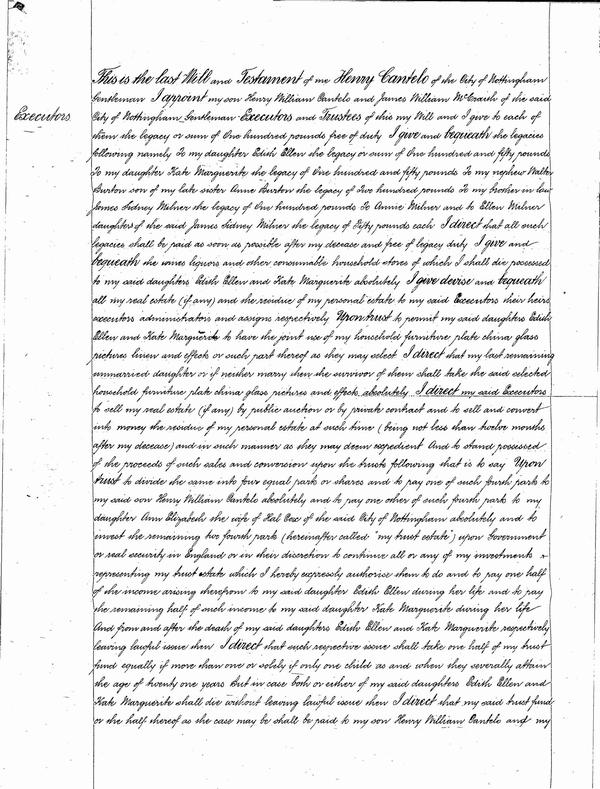 This is the last Will and Testament of me Henry Cantelo of the City of Nottingham
Gentleman I appoint my son Henry William Cantelo and James William McCraith of the said
Executors
City of Nottingham Gentleman Executors and Trustees of this my Will and I give to each of
them the legacy or sum of One hundred pounds free of duty I give and bequeath the legacies
following namely To my daughter Edith Ellen the legacy or sum of One hundred and fifty pounds
To my daughter Kate Marguerite the legacy of One hundred and fifty pounds To my nephew Walter
Burton son of my late sister Anne Burton the legacy of Two hundred pounds To my brother in law
James Sidney Milner the legacy of One hundred pounds To Annie Milner and to Ellen Milner
daughters of the said James Sidney Milner the legacy of Fifty pounds each I direct that all such
legacies shall be paid as soon as possible after my decease and free of legacy duty I give and
bequeath the wines liquors and other consumable household stores of which I shall die possessed
to my said daughters Edith Ellen and Kate Marguerite absolutely I give devise and bequeath
all my real estate (if any) and the residue of my personal estate to my said Executors their heirs
executors administrators and assigns respectively Upon trust to permit my said daughters Edith
Ellen and Kate Marguerite to have the joint use of my household furniture plate china glass
pictures linen and effects or such part thereof as they may select I direct that my last remaining
unmarried daughter or if neither marry then the survivor of them shall take the said selected
household furniture plate china glass pictures and effects absolutely I direct my said Executors
to sell my real estate (if any) by public auction or by private contract and to sell and convert
into money the residue of my personal estate at such time (being not less than twelve months
after my decease) and in such manner as they may deem expedient And to stand possessed
of the proceeds of such sales and conversion upon the trusts following that is to say Upon
trust to divide the same into four equal parts or shares and to pay one of such fourth parts to
my said son Henry William Cantelo absolutely and to pay one other of such fourth parts to my
daughter Ann Elizabeth the wife of Hal Cox of the said City of Nottingham absolutely and to
invest the remaining two fourth parts (hereinafter called "my trust estate") upon Government
or real security in England or in their discretion to continue all or any of my investments
representing my trust estate which I hereby expressly authorise them to do and to pay one half
of the income arising therefrom to my said daughter Edith Ellen during her life and to pay
the remaining half of such income to my said daughter Kate Marguerite during her life
And from and after the death of my said daughters Edith Ellen and Kate Marguerite respectively
leaving lawful issue then I direct that such respective issue shall take one half of my trust
fund equally if more than one or solely if only one child as and when they severally attain
the age of twenty one years But in case both or either of my said daughters Edith Ellen and
Kate Marguerite shall die without leaving lawful issue then I direct that my said trust fund
or the half thereof as the case may be shall be paid to my son Henry William Cantelo and my